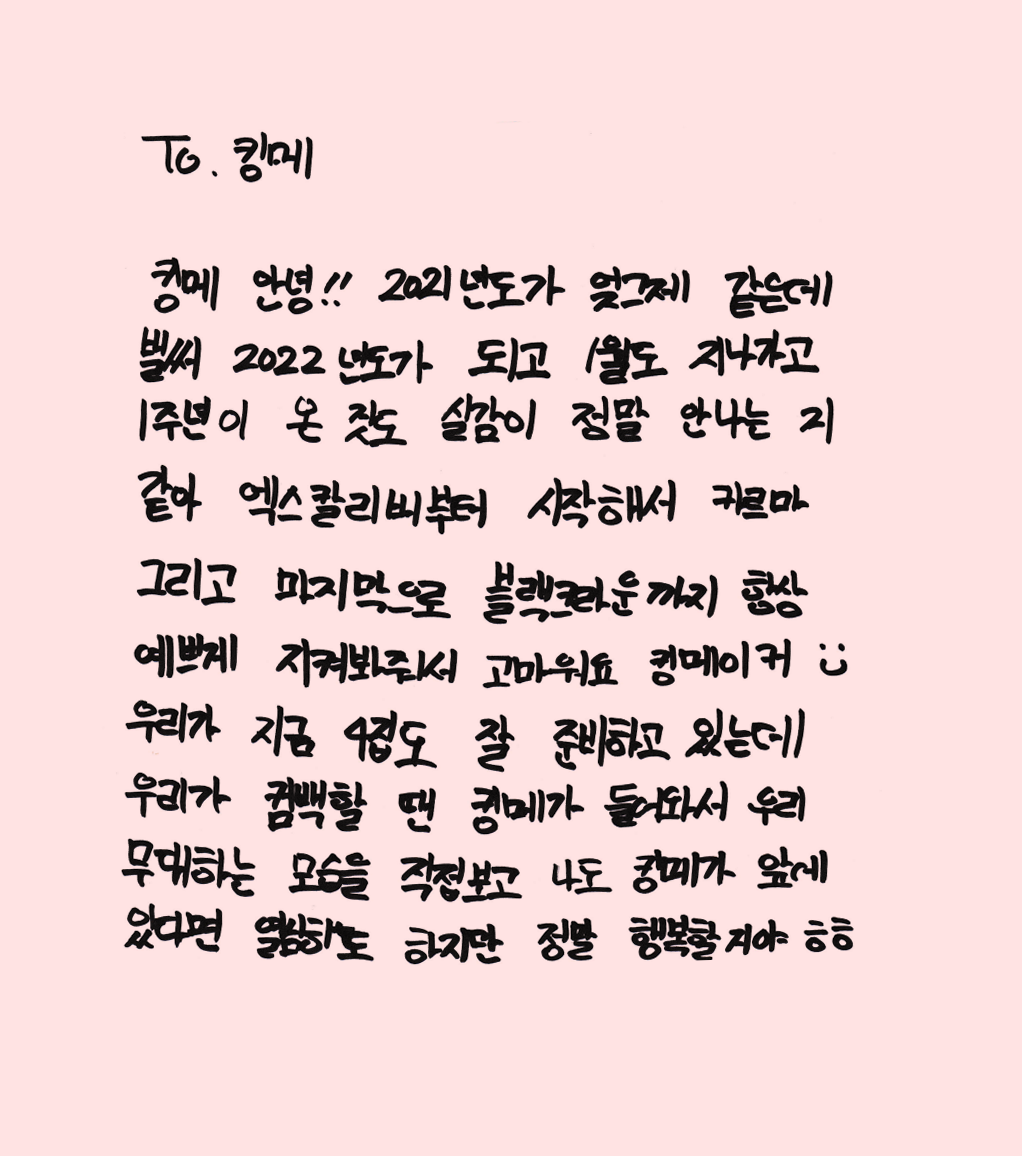 To. 킹메
킹메 안녕!! 2021년도가 엊그제 같은데
벌써 2022년도가 되고 1월도 지나가고
1주년이 온 것도 실감이 정말 안나는 거
같아 엑스칼리버부터 시작해서 카르마
그리고 마지막으로 블랙크라운까지 항상
예쁘게 지켜봐주셔서 고마워요 킹메이커 :)
우리가 지금 4집도 잘 준비하고 있는데
우리가 컴백할 땐 킹메가 들어와서 우리
무대하는 모습을 직접보고 나도 킹메가 앞에
있다면 열심히도 하지만 정말 행복할거야 ㅎㅎ